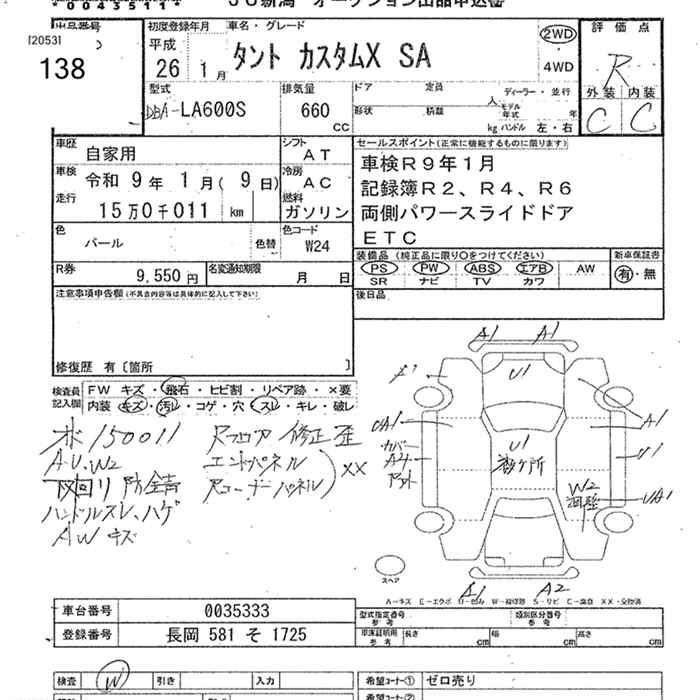 00455111
JU新潟 オークション出品申込書
出品番号
[2053]
138
初度登録年月
平成
26 1月
車名・グレード
タント カスタムX SA
2WD・4WD
評価点
R
外装 内装
C C
型式
DBA-LA600S
排気量
660 cc
ドア 定員 人
形状 積載 kg
ディーラー・並行
モデル年式 年
ハンドル 左・右
車歴
自家用
シフト
AT
車検
令和 9年 1月(9日)
冷房
AC
走行
15万0千011 km
燃料
ガソリン
色
パール
色替
色コード
W24
セールスポイント(正常に機能するものに限ります)
車検R9年1月
記録簿R2、R4、R6
両側パワースライドドア
ETC
装備品 (純正品に限り○をつけてください)
PS PW ABS エアB AW
SR ナビ TV カワ
新車保証書
有・無
R券
9,550円
名変通知期限
月 日
後日品
注意事項申告欄(不具合内容等は具体的に記入して下さい)
修復歴 有〔箇所 〕
検査員記入欄
FW キズ・飛石・ヒビ割・リペア跡・×要
内装 キズ・汚レ・コゲ・穴・スレ・キレ・破レ
ホ150011
AU、W2
下回り防錆
ハンドルスレ、ハゲ
AWキズ
Rフロア 修正歪
エンドパネル
Rコーナーパネル
××
A1 A1
U1
A1
UA1
カバー
A4
U1
数ヶ所
A1
U1
UA1
W2
調整
A1 A2
スペア
A−キズ E−エクボ U−凹み W−補修跡 S−サビ C−腐食 ××−交換済
車台番号
0035333
登録番号
長岡 581 そ 1725
型式指定番号
参考
類別区分番号
参考
車庫証明用
参考
長さ cm 幅 cm 高さ cm
検査 W 引き 入力
希望コーナー① ゼロ売り
希望コーナー②